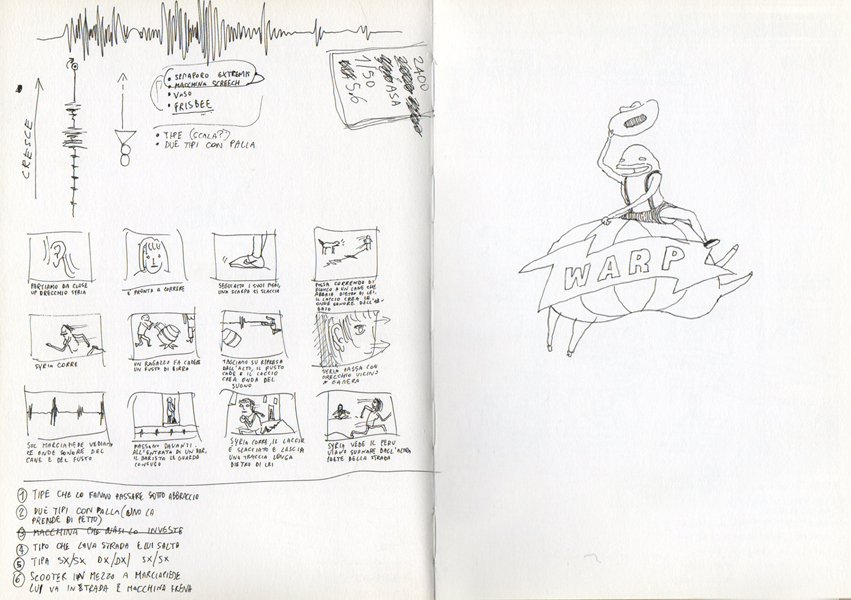 CRESCE
SEMAFORO EXTREMIS
MACCHINA SCREECH
VASO
FRISBEE
TIPE (SCALA??)
DUE TIPI CON PALLA
2400
ASA
1/50
5.6
PARTIAMO DA CLOSE
UP ORECCHIO SYRIA
È PRONTA A CORRERE
SEGUIAMO I SUOI PIEDI,
UNA SCARPA SI SLACCIA
PASSA CORRENDO DI
FIANCO A UN CANE CHE
ABBAIA DIETRO DI LEI.
IL LACCIO CREA LE
ONDE SONORE DELL'AB-
BAIO
SYRIA CORRE
UN RAGAZZO FA CADERE
UN FUSTO DI BIRRA
TAGLIAMO SU RIPRESA
DALL'ALTO, IL FUSTO
CADE E IL LACCIO
CREA ONDA DEL
SUONO
SYRIA PASSA CON
ORECCHIO VICINO
A CAMERA
SUL MARCIAPIEDE VEDIAMO
LE ONDE SONORE DEL
CANE E DEL FUSTO
PASSANO DAVANTI
ALL'ENTRATA DI UN BAR,
IL BARISTA LE GUARDA
CONFUSO
SYRIA CORRE, IL LACCIO
È SLACCIATO E LASCIA
UNA TRACCIA LUNGA
DIETRO DI LEI
SYRIA VEDE IL PERU
VIANO SUONARE DALL'ALTRA
PARTE DELLA STRADA
1 TIPE CHE LO FANNO PASSARE SOTTO ABBRACCIO
2 DUE TIPI CON PALLA (UNO LA
PRENDE DI PETTO)
3 MACCHINA CHE QUASI LO INVESTE
4 TIPO CHE LAVA STRADA E LUI SALTA
5 TIPA SX/SX DX/DX/ SX/SX
6 SCOOTER IN MEZZO A MARCIAPIEDE
LUI VA IN STRADA E MACCHINA FRENA
WARP